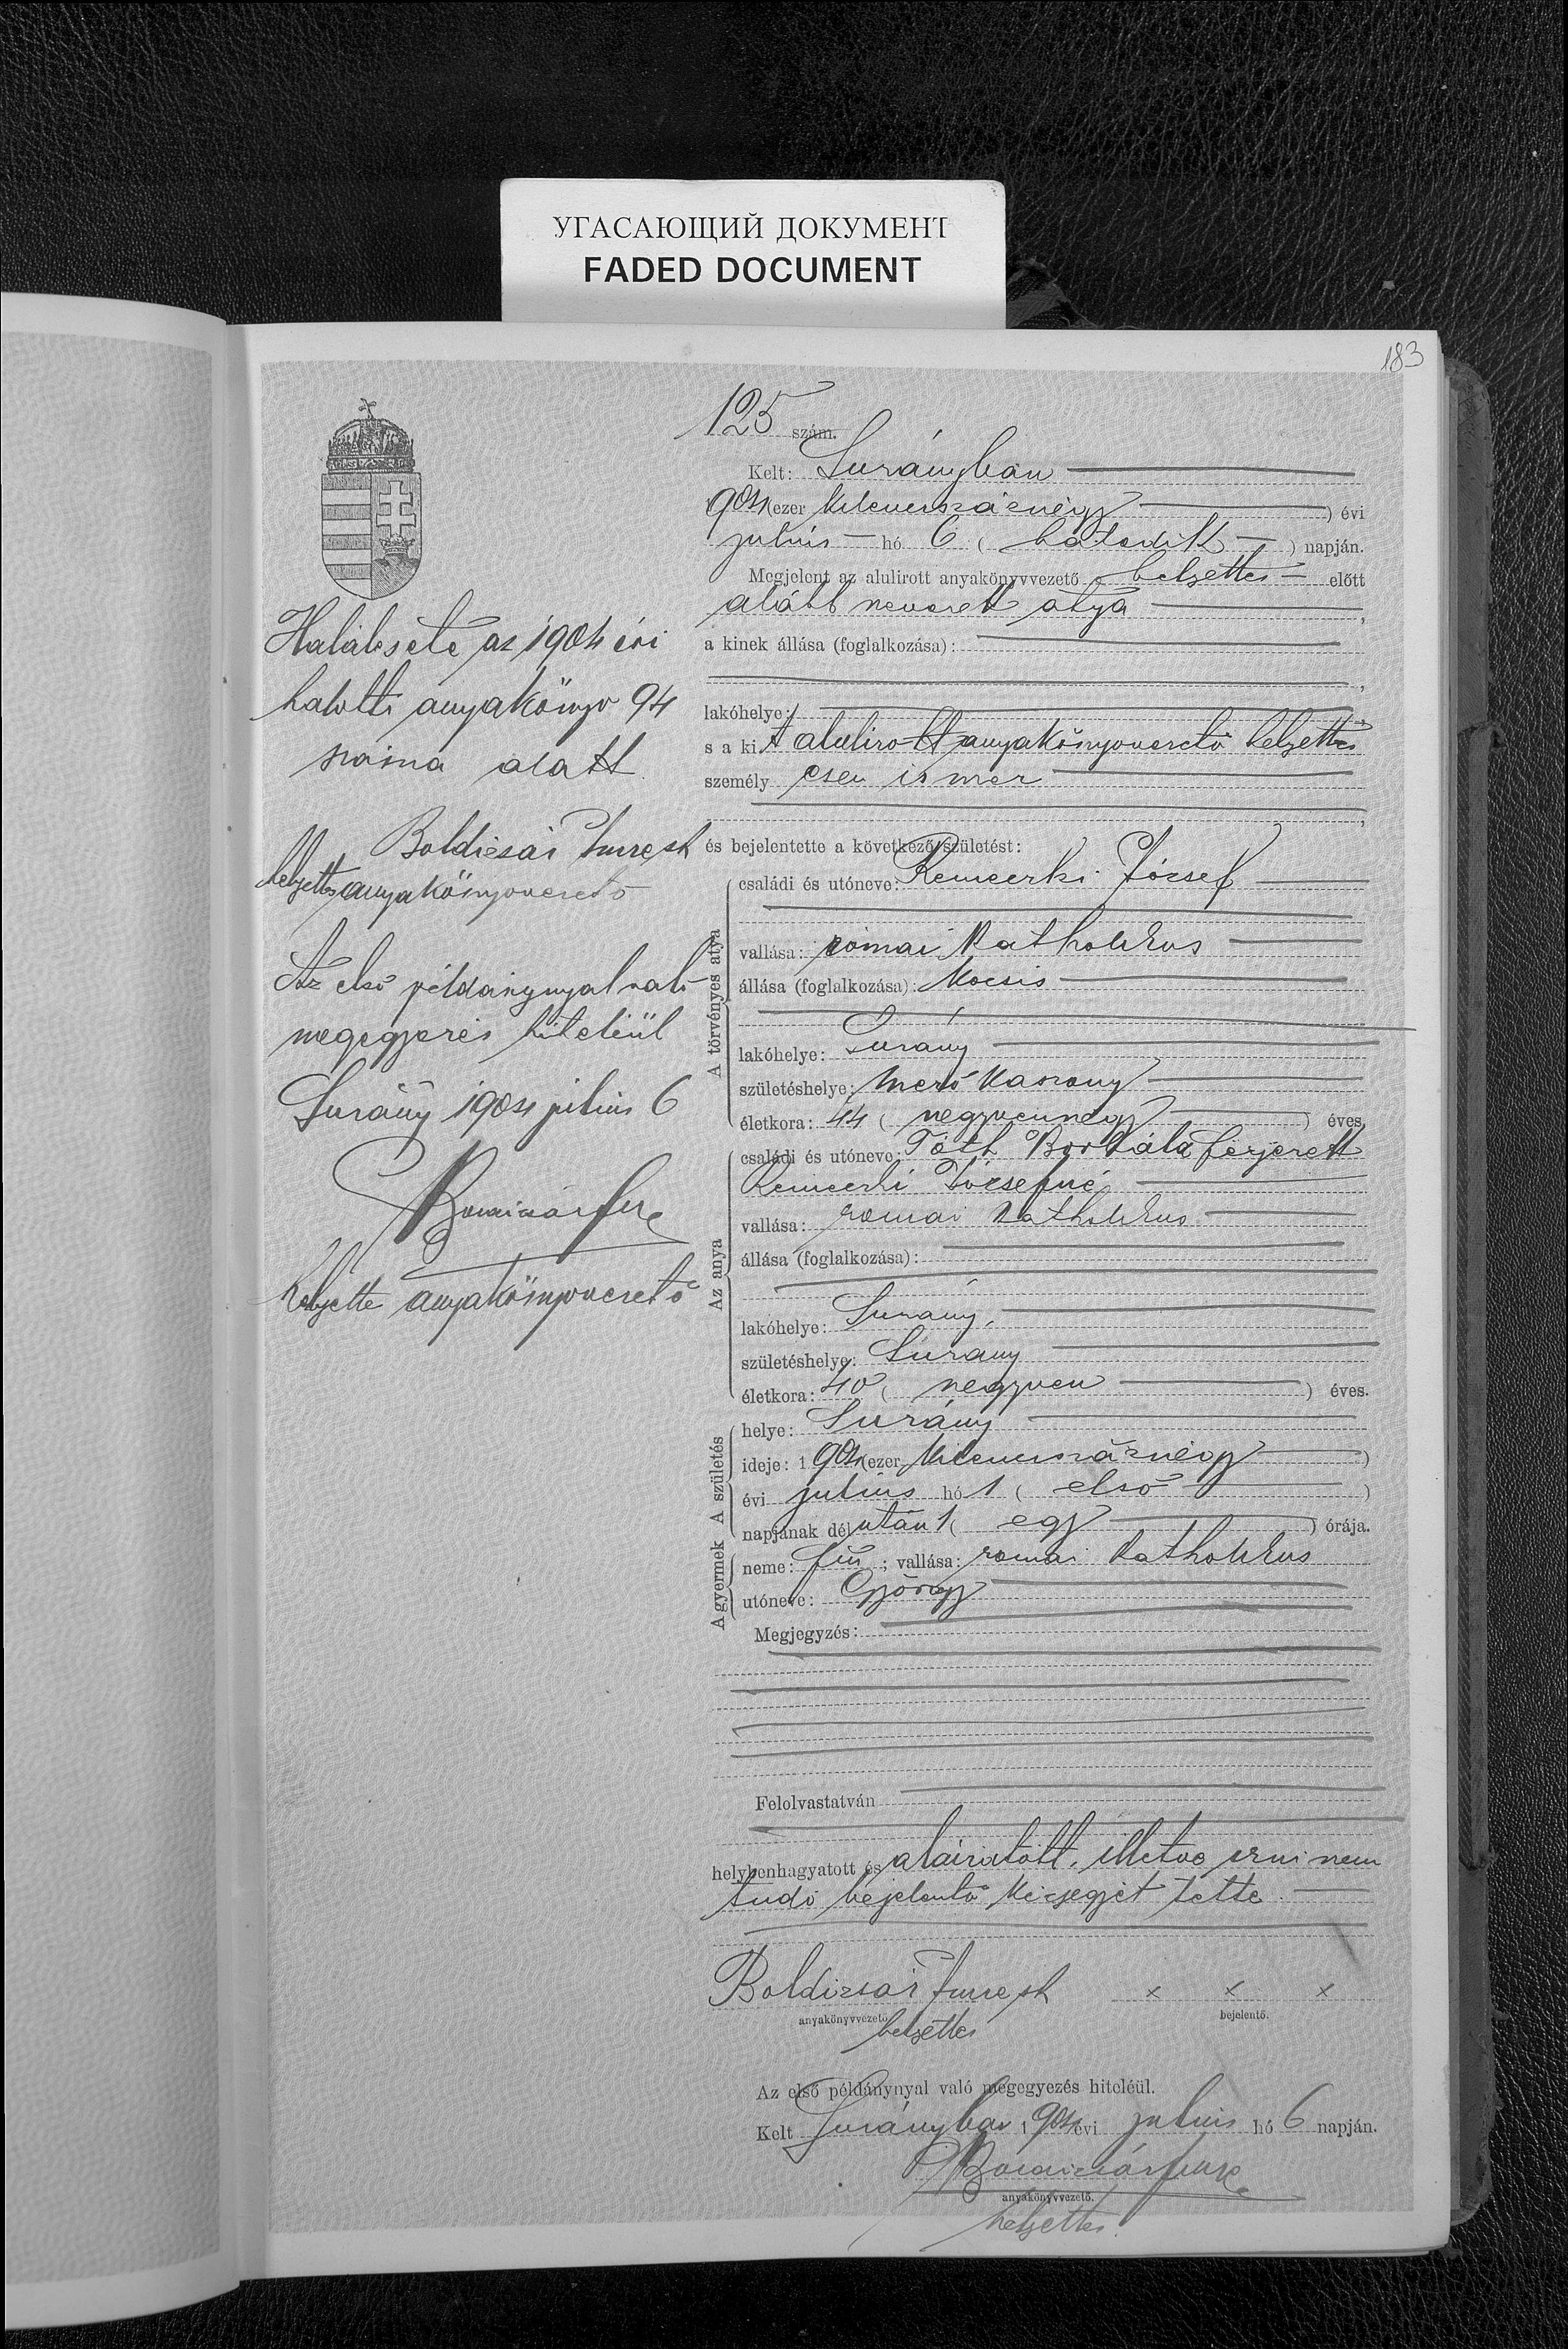 УГАСАЮЩИЙ ДОКУМЕНТ
FADED DOCUMENT
183
125 szám.
Kelt: Surányban
1904 (ezer kilencszáznégy) évi
julius hó 6 (hatodik) napján.
Megjelent az alulirott anyakönyvvezető helyettes előtt
alább nevezett atya,
a kinek állása (foglalkozása):
,
lakóhelye:
s a kit alulirott anyakönyvvezető helyettes
személyesen ismer
,
és bejelentette a következő születést:
A törvényes atya
családi és utóneve: József
vallása: római katholikus
állása (foglalkozása): kocsis
lakóhelye: Surány
születéshelye: Mező Kaszony
életkora: 44 (negyvennégy) éves,
Az anya
családi és utóneve: Tóth Borbála férjezett
Józsefné
vallása: romai katholikus
állása (foglalkozása):
lakóhelye: Surány,
születéshelye: Surány
életkora: 40 (negyven) éves.
A születés
helye: Surány
ideje: 1904 (ezer kilencszáznégy)
évi julius hó 1 (első)
napjának délután 1 (egy) órája.
A gyermek
neme: fiu; vallása: romai katholikus
utóneve: György
Megjegyzés:
Felolvastatván
helybenhagyatott és aláiratott, illetve irni nem
tudó bejelentő kézjegyét tette.
Boldizsár Imre sk x x x
anyakönyvvezető bejelentő.
helyettes
Az első példánynyal való megegyezés hiteléül.
Kelt Surányban 1904 évi julius hó 6 napján.
Boldizsár Imre
anyakönyvvezető.
helyettes.
Halálesete az 1904 évi
halotti anyakönyv 94
száma alatt.
Boldizsár Imre sk
helyettes anyakönyvvezető
Az első példánynyal való
megegyezés hiteléül
Surány 1904 julius 6
Boldizsár Imre
helyette anyakönyvvezető